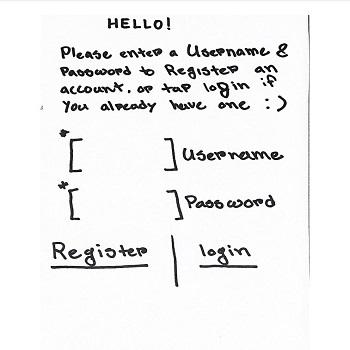 HELLO!
Please enter a Username &
Password to Register an
account, or tap login if
You already have one :)
*[ ] Username
*[ ] Password
Register | login